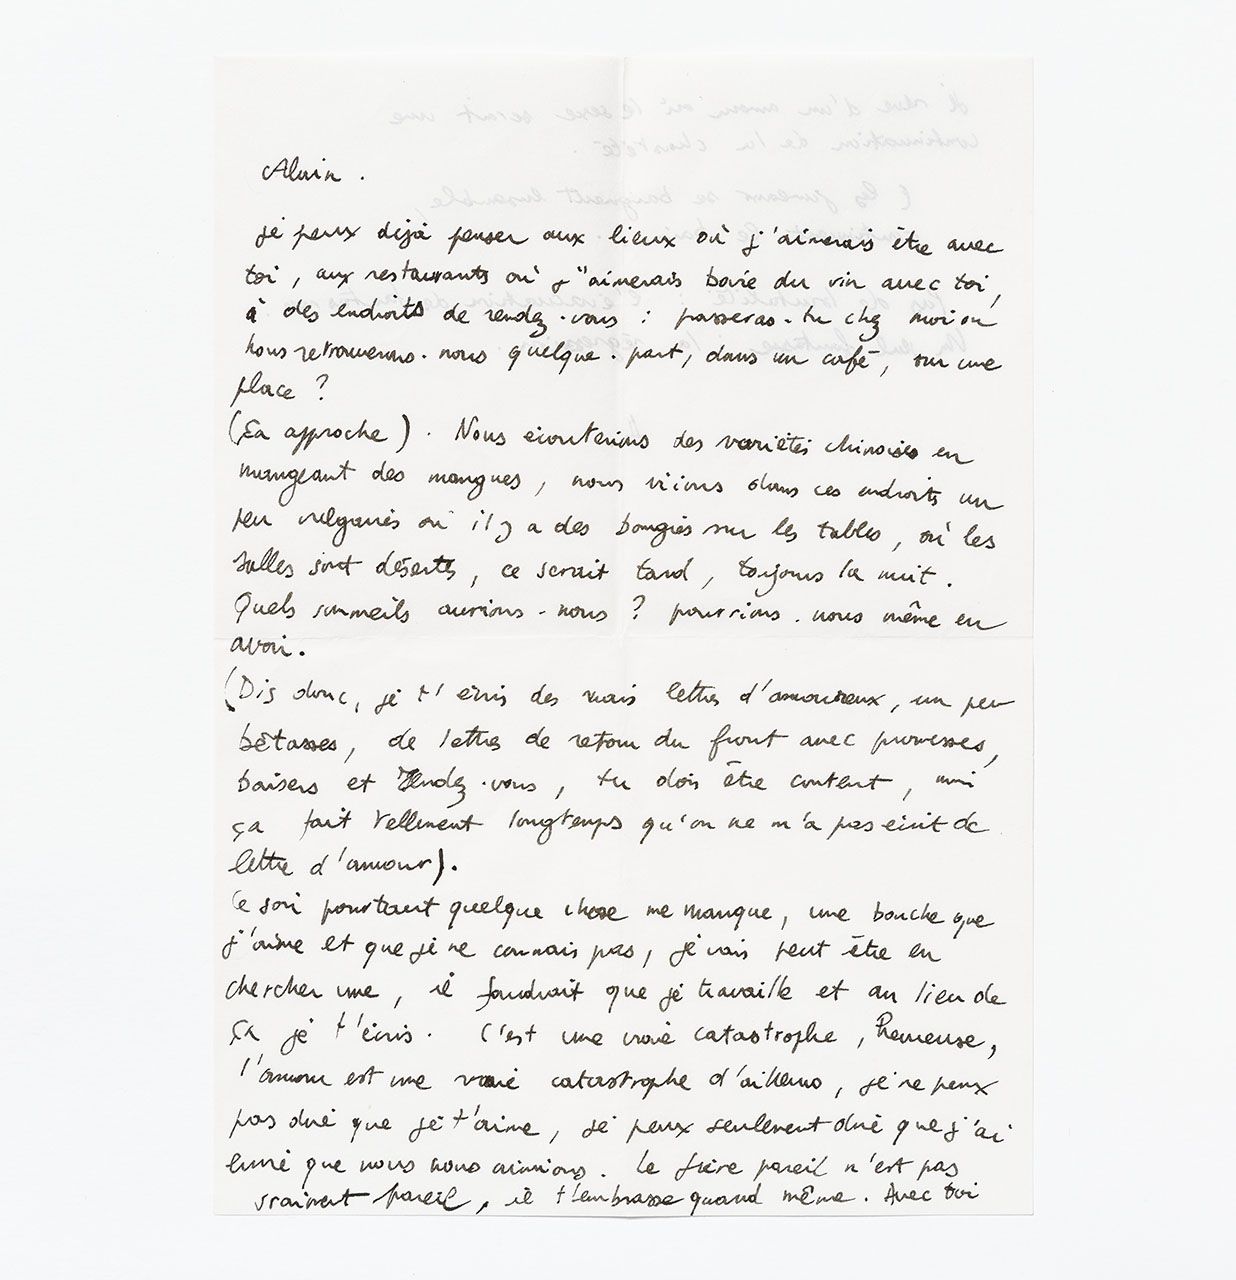 Alain.
je peux déjà penser aux lieux où j'aimerais être avec
toi, aux restaurants où j'aimerais boire du vin avec toi,
à des endroits de rendez-vous : passeras-tu chez moi ou
nous retrouverons-nous quelque-part, dans un café, sur une
place ?
(ça approche). Nous écouterions des variétés chinoises en
mangeant des mangues, nous irions dans ces endroits un
peu vulgaires où il y a des bougies sur les tables, où les
salles sont désertes, ce serait tard, toujours la nuit.
Quels sommeils aurions-nous ? pourrions-nous même en
avoir.
(Dis donc, je t'écris des vrais lettres d'amoureux, un peu
bêtasses, de lettres de retour du front avec promesses,
baisers et rendez-vous, tu dois être content, moi
ça fait tellement longtemps qu'on ne m'a pas écrit de
lettre d'amour).
Ce soir pourtant quelque chose me manque, une bouche que
j'aime et que je ne connais pas, je vais peut être en
chercher une, il faudrait que je travaille et au lieu de
ça je t'écris. C'est une vraie catastrophe, heureuse,
l'amour est une vraie catastrophe d'ailleurs, je ne peux
pas dire que je t'aime, je peux seulement dire que j'ai
envie que nous nous aimions. Le frère pareil n'est pas
vraiment pareil, il t'embrasse quand même. Avec toi